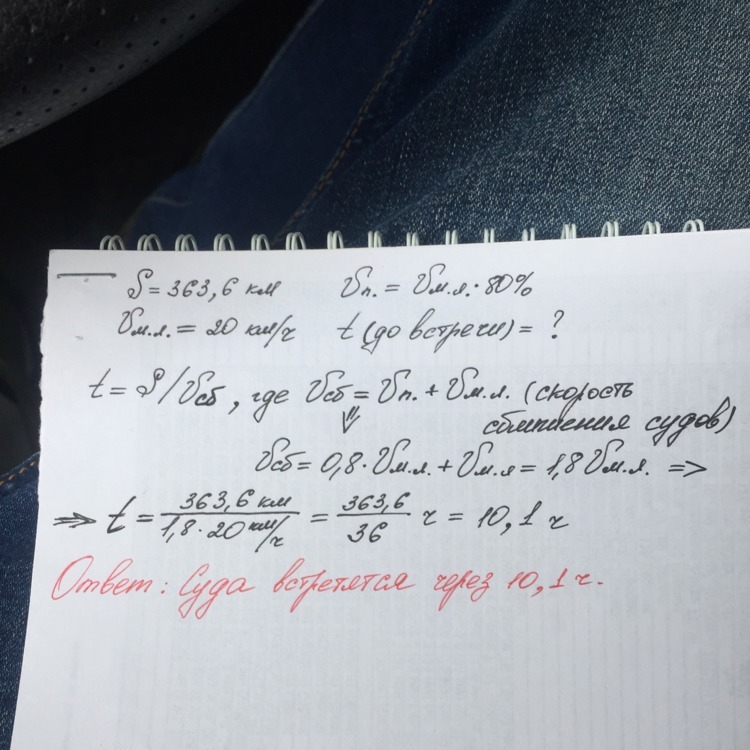 S = 363,6 км
Vп. = Vм.л. · 80%
Vм.л. = 20 км/ч
t (до встречи) = ?
t = S/Vсб, где Vсб = Vп. + Vм.л. (скорость
сближения судов)
⇓
Vсб = 0,8 · Vм.л. + Vм.л = 1,8 Vм.л. =>
=> t = 363,6 км / 1,8 · 20 км/ч = 363,6 / 36 ч = 10,1 ч
Ответ: Суда встретятся через 10,1 ч.